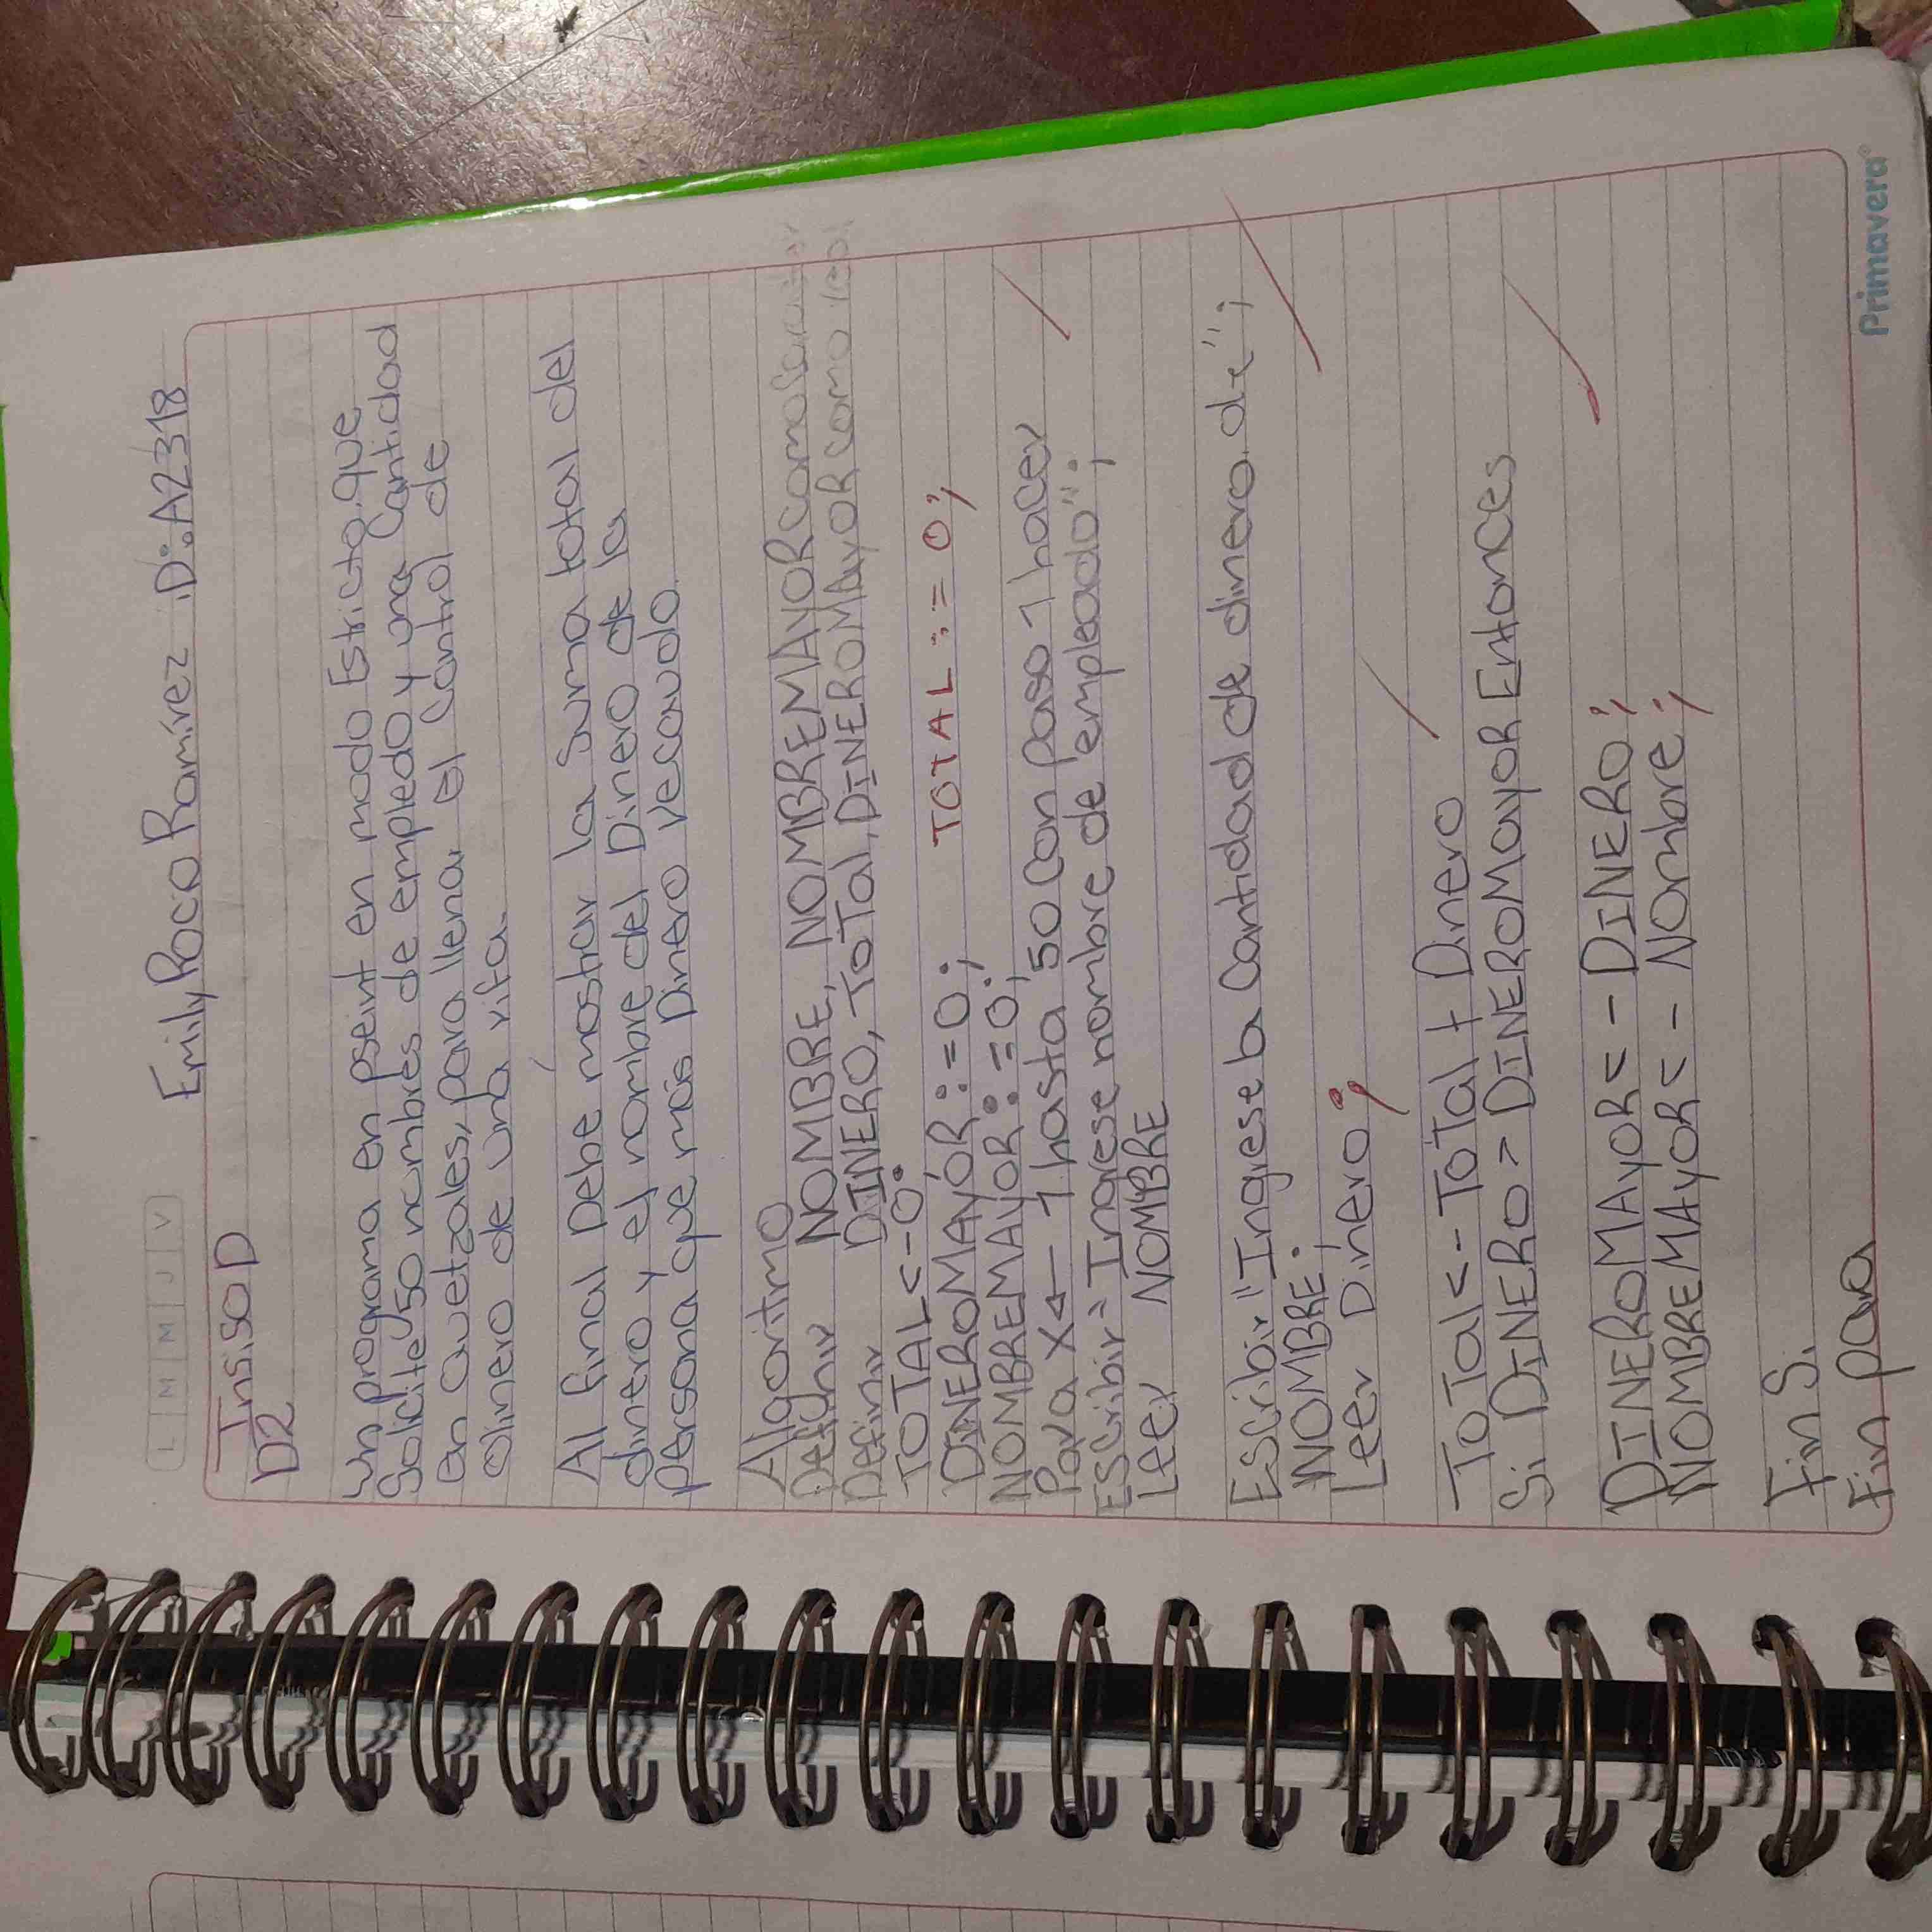 Emily Roco Ramírez iD:A2318
L M M J V
Insiso D
D2
un programa en pseint en modo Estricto que
Solicite 50 nombres de empledo y una Cantidad
en quetzales, para llenar el Control de
dinero de una rifa.
Al final Debe mostrar la Suma total del
dinero y el nombre del Dinero de la
persona que más Dinero recaudo.
Algoritmo
Definir NOMBRE, NOMBREMAYOR como
Definir DINERO, ToTal, DINEROMAYOR como real
TOTAL<-0; TOTAL := 0;
DINEROMAYOR:=0;
NOMBREMAYOR:=0;
Para X<- 1 hasta 50 Con paso 1 hacer
EScribir" Ingrese nombre de empleado";
Leer NOMBRE
Escribir "Ingrese la Cantidad de dinero de";
NOMBRE;
Leer Dinero;
ToTal<- ToTal + Dinero
Si DINERO > DINEROMayoR Entonces
DINEROMAyOR<- DINERO;
NOMBREMAyOR<- Nombre;
Fin Si
Fin para
Primavera